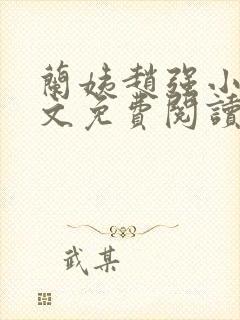 蘭姨趙強小
文免費閱讀
武某